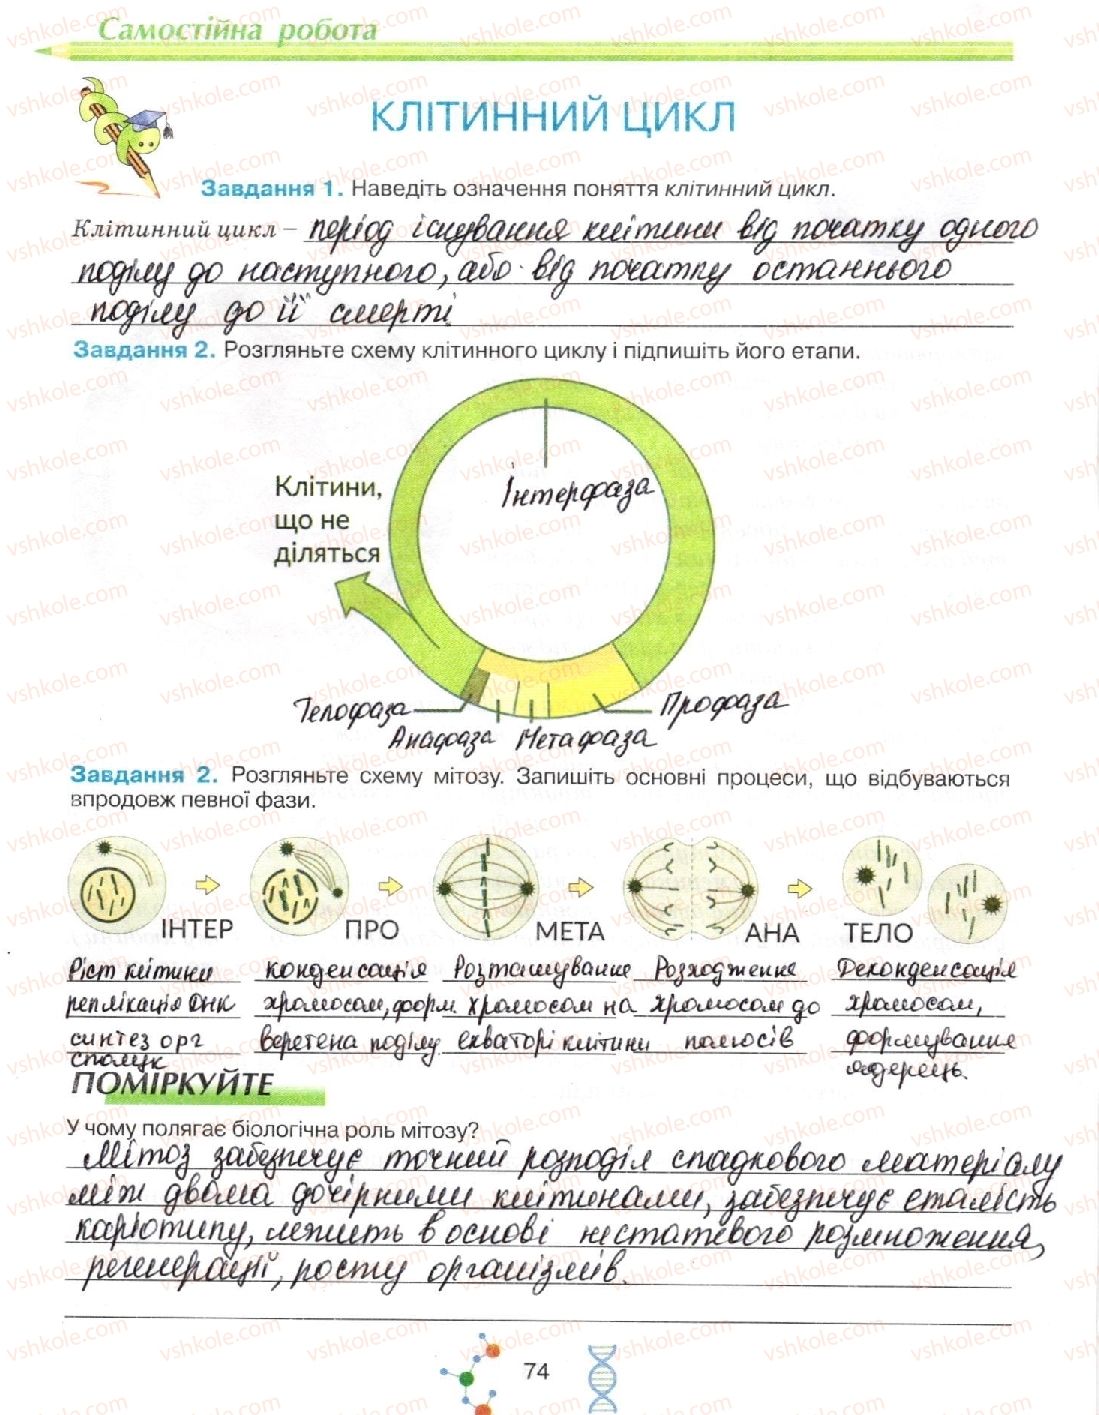 Самостійна робота
КЛІТИННИЙ ЦИКЛ
Завдання 1. Наведіть означення поняття клітинний цикл.
Клітинний цикл – період існування клітини від початку одного
поділу до наступного, або від початку останнього
поділу до її смерті
Завдання 2. Розгляньте схему клітинного циклу і підпишіть його етапи.
Клітини,
що не
діляться
Інтерфаза
Телофаза
Анафаза
Метафаза
Профаза
Завдання 2. Розгляньте схему мітозу. Запишіть основні процеси, що відбуваються
впродовж певної фази.
ІНТЕР ПРО МЕТА АНА ТЕЛО
Ріст клітини конденсація Розташування Розходження Деконденсація
реплікація ДНК хромосом, форм. хромосом на хромосом до хромосом,
синтез орг веретена поділу екваторі клітини полюсів формування
сполук ядерець.
ПОМІРКУЙТЕ
У чому полягає біологічна роль мітозу?
Мітоз забезпечує точний розподіл спадкового матеріалу
між двома дочірними клітинами, забезпечує сталість
каріотипу, лежить в основі нестатевого розмноження,
регенерації, росту організмів.
74
vshkole.com